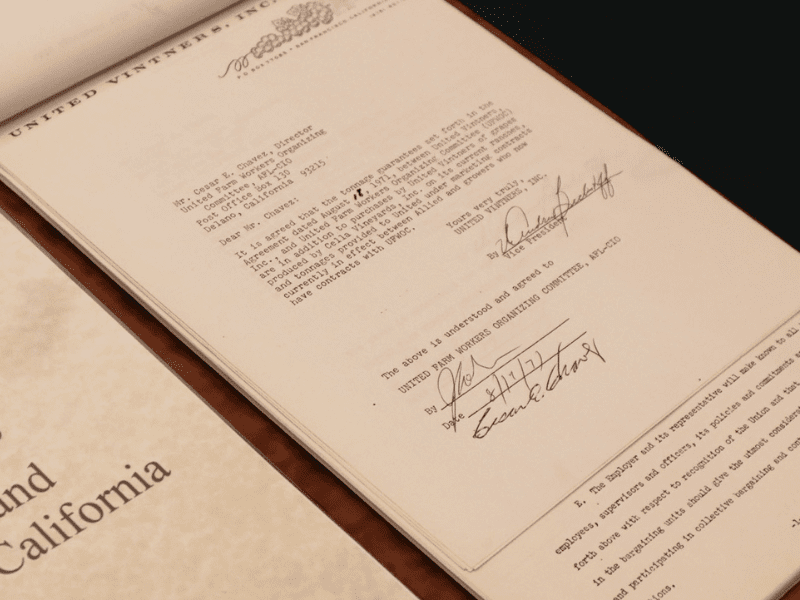 UNITED VINTNERS, INC.
Mr. Cesar E. Chavez, Director
United Farm Workers Organizing
Committee, AFL-CIO
Post Office Box 130
Delano, California 93215
Dear Mr. Chavez:
It is agreed that the tonnage guarantees set forth in the
Agreement dated August 1971, between United Vintners,
Inc., and United Farm Workers Organizing Committee (UFWOC)
are in addition to purchases by United Vintners of grapes
produced by Cella Vineyards, Inc. on its current ranches,
and tonnages provided to United under marketing contracts
currently in effect between Allied and growers who now
have contracts with UFWOC.
Yours very truly,
UNITED VINTNERS, INC.
By
Vice President
The above is understood and agreed to
UNITED FARM WORKERS ORGANIZING COMMITTEE, AFL-CIO
By
Date 8/17/71
Cesar E. Chavez
E. The Employer and its representative will make known to all
employees, supervisors and officers, its policies and commitments
forth above with respect to recognition of the Union and that
in the bargaining units should give the utmost
and participating in collective bargaining and
and
California